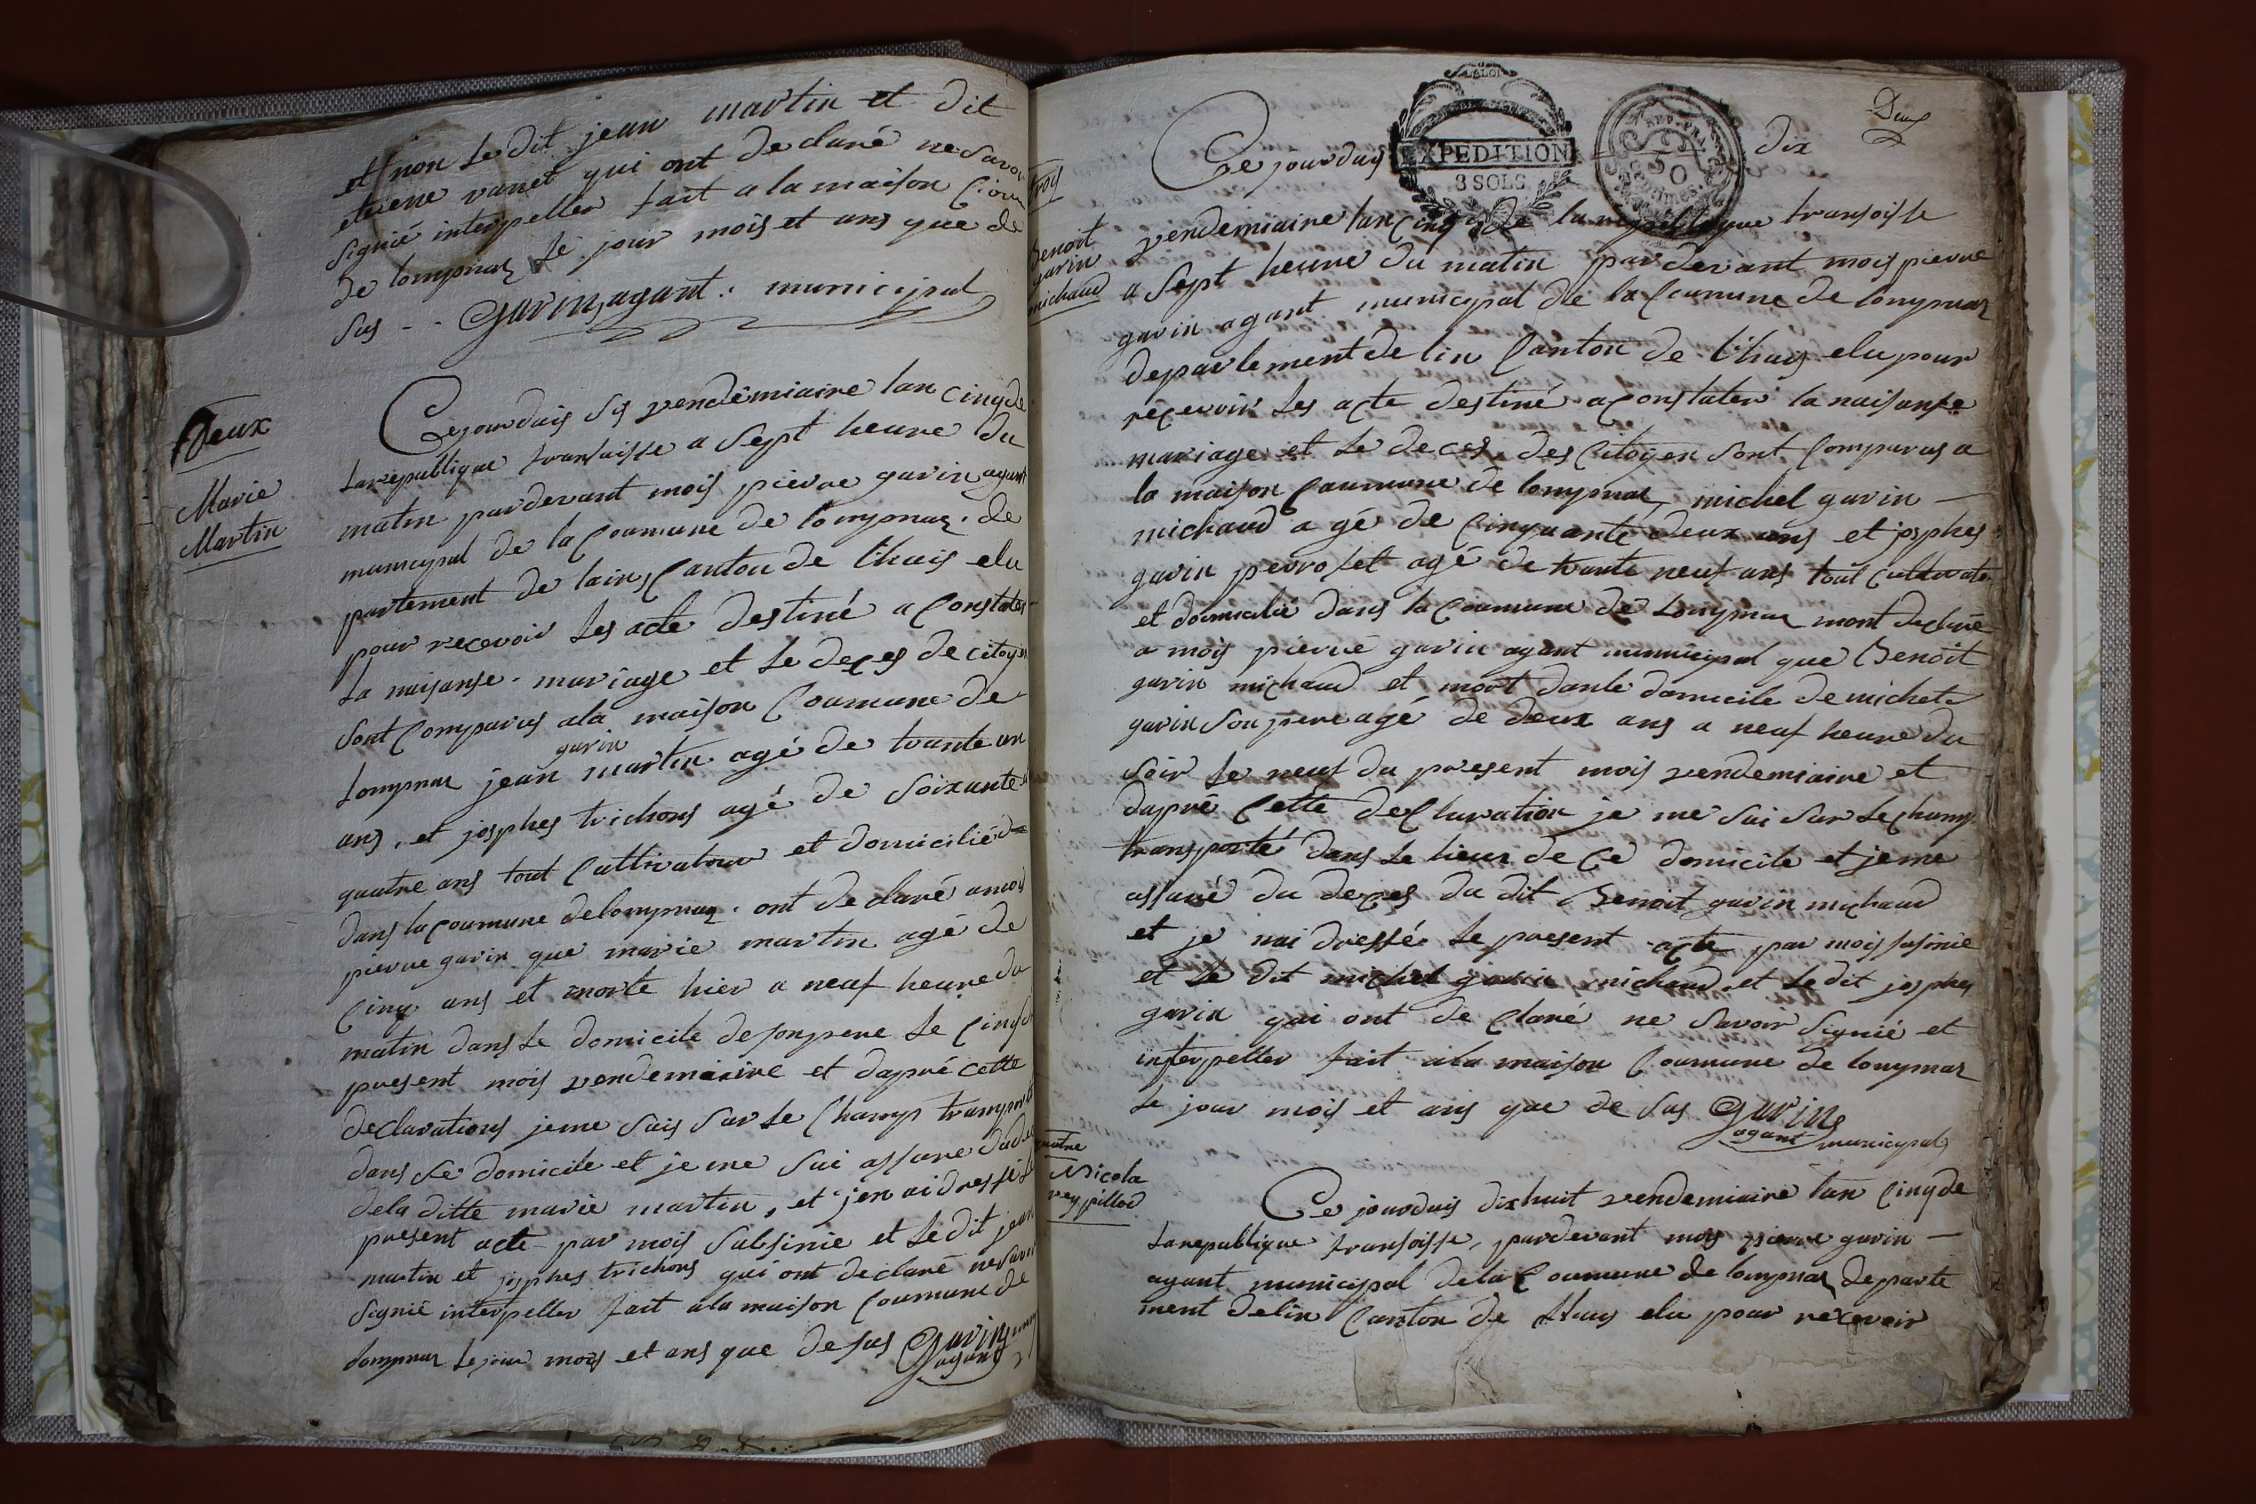 et non le dit jean martin et dit
etiene vanet qui ont declaré ne savoir
signié interpeller fait a la maison Com
de lompnaz le jour mois et ans que de
sus - - garin, agant. municipal
Deux
Marie
Martin
Cejourduis sis vendémiaire lan cinq de
larepublique fransaisse a sept heure du
matin pardevant mois pierre garin agant
municipal de la Coumune de lompnaz. de
partement de lain, Canton de lhuis elu
pour recevoir les acte destiné a Constater
la naisanse. mariage et le deces de citoyen
sont Comparus ala maison Coumune de
garin
Lompnaz jean martin agé de trante un
ans, et josphes trichons agé de soixante
quatre ans tout Cultivatour et domicilié
dans la Coumune de lompnaz. ont declaré amois
pierre garin que marie martin agé de
Cinq ans et morte hier a neuf heure du
matin dans le domicile de son pere le Cinq du
present mois vendemiaire et dapré cette
declarations jeme suis sur le Champs transporté
dans le domicile et jeme sui assure du de
dela ditte marie martin, et j'en ai dressé le
present acte par mois subsinie et le dit jean
martin et josphes trichons qui ont declaré ne savoir
signié interpeller fait ala maison Coumune de
lompnaz le jour mois et ans que de sus Garin
agant
Deux
Ce jourduis dix
EXPEDITION
3 SOLS
LA LOI
REP. FRA.
50
CENTIMES
trois
Benoit
garin
michaud
vendemiaire lan Cinq de la republique fransoisse
a sept heure du matin par devant mois pierre
garin agant municipal de la Coumune de lompnaz
departement de lin Canton de lhuis elu pour
recevoir les acte destiné a Constater la naisanse
mariage et le deces des Citoyen sont Comparus a
la maison Coumune de lompnaz, michel garin -
michaud agé de Cinquante deux ans et josphes
garin perroset agé de trante neuf ans tout Cultivate
et domicilié dans la Coumune de Lompnaz mont declaré
a mois pierre garin agant municipal que Benoit
garin michaud et mort danle domicile de michel
garin son pere agé de deux ans a neuf heure du
soir le neuf du present mois vendemiaire et
dapré Cette declaration je me sui sur le Champ
transporté dans le lieux de Ce domicile et jeme
assuré du deces du dit Benoit garin michaud
et je nai dressée le present acte par mois susinie
et le dit michel garin michaud et le dit josphes
garin qui ont de Claré ne savoir signié et
interpeller fait ala maison Coumune de lompnaz
le jour mois et ans que de sus Garin
agant municipal
quatre
Nicola
reypillod
Ce jourduis dixhuit vendemiaire lan Cinq de
larepublique fransoisse, pardevant mois pierre garin -
agant municipal dela Coumune de lompnaz departe
ment delin Canton de lhuis elu pour recevoir